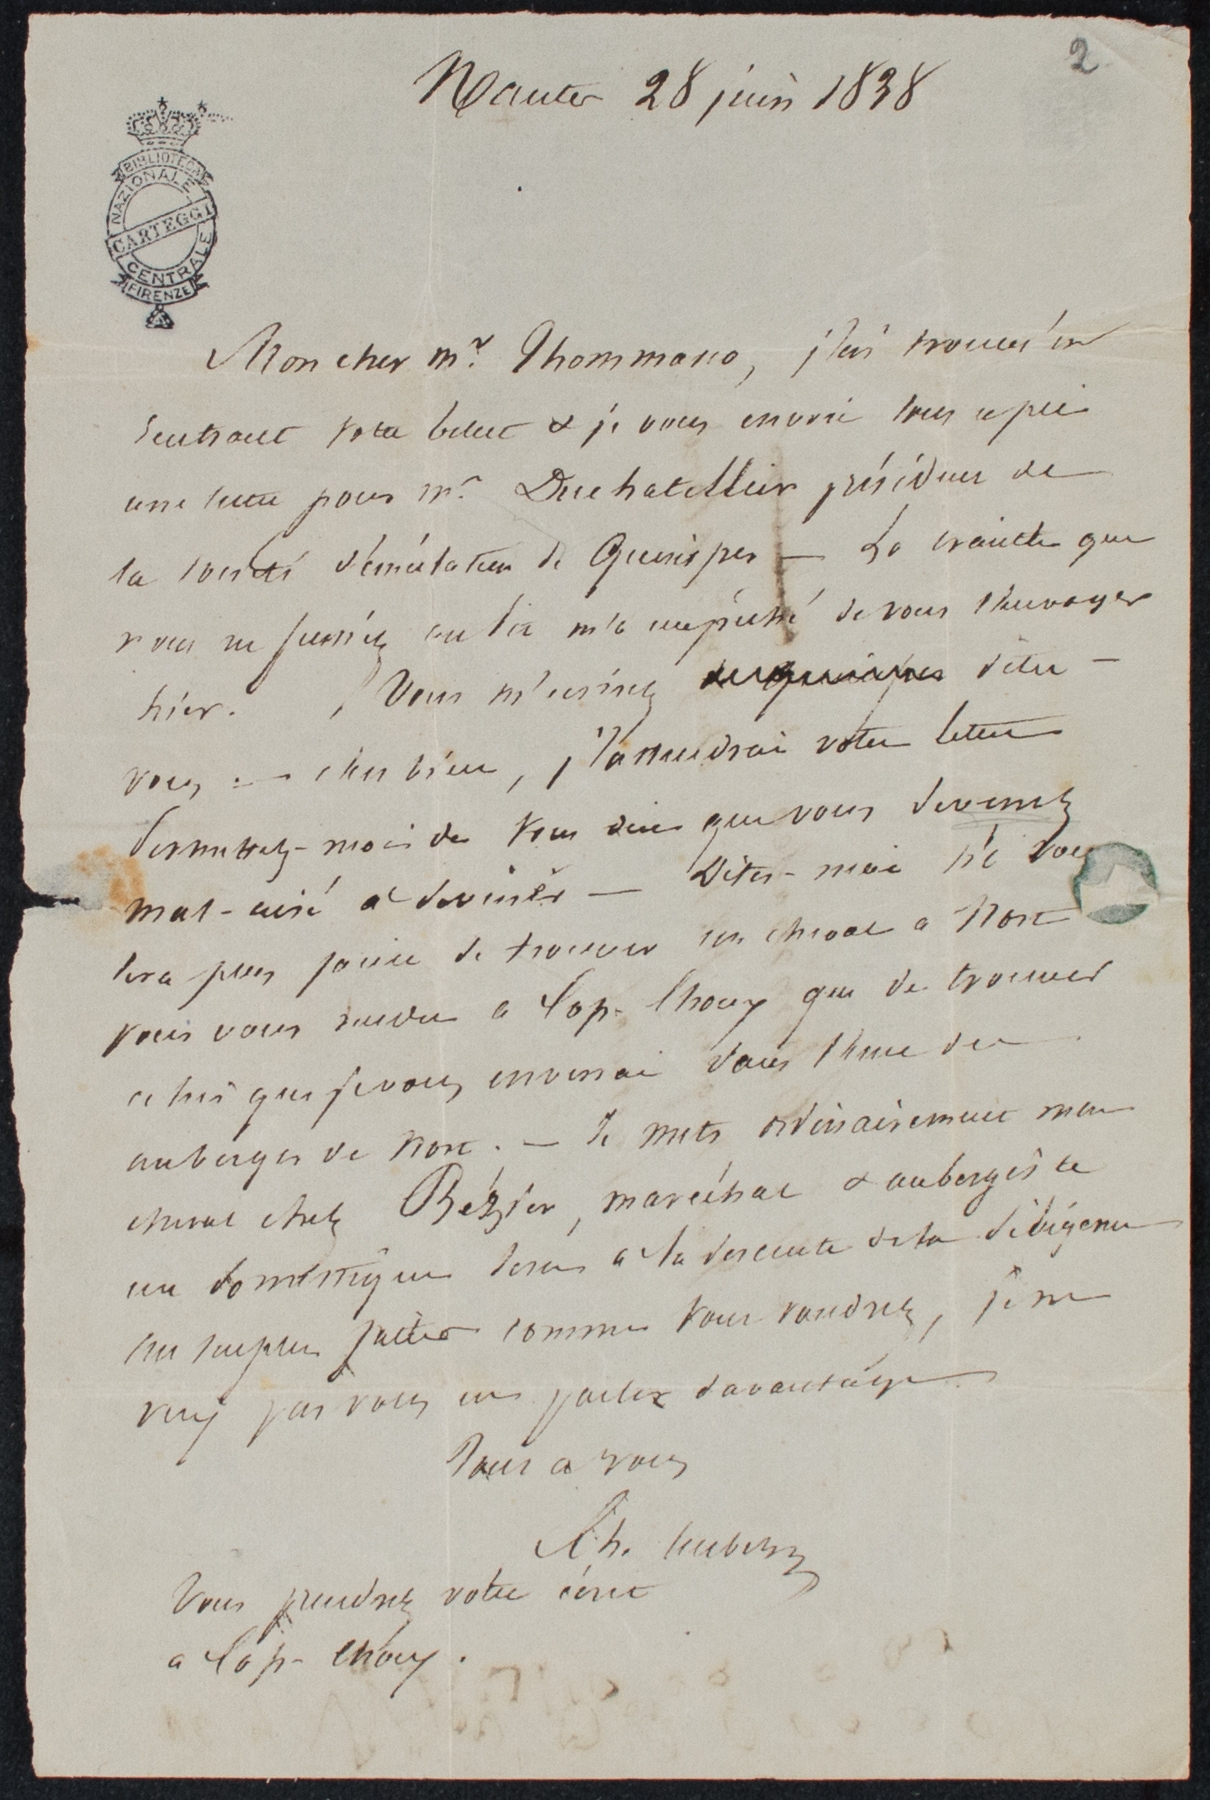 2
Nantes 28 juin 1838
BIBLIOTECA
NAZIONALE
CARTEGGI
CENTRALE
FIRENZE
Mon cher Mr. Thommaseo, j'ai trouvé en
rentrant votre billet & je vous envoie sous ce pli
une lettre pour Mr. Duchatellier président de
la société d'émulation de Quimper — La crainte que
vous ne fussiez au lit m'a empêché de vous l'envoyer
hier. Vous m'
vous — chez bien, j'attendrai votre lettre
Permettez-moi de vous dire que vous devenez
mal-aisé a deviner — Dites-moi s'il vous
sera plus facile de trouver un cheval a Nort
pour vous rendre a Cop-Choux que de trouver
celui que je vous enverrai dans l'une des
auberges de Nort. — Je mets ordinairement mon
cheval chez Bézier, maréchal & aubergiste
un domestique sera a la descente de la diligence
au surplus faites comme vous voudrez, je ne
veux pas vous en parler davantage
Tout a vous
Ch.
Vous prendrez votre
a Cop-Choux.